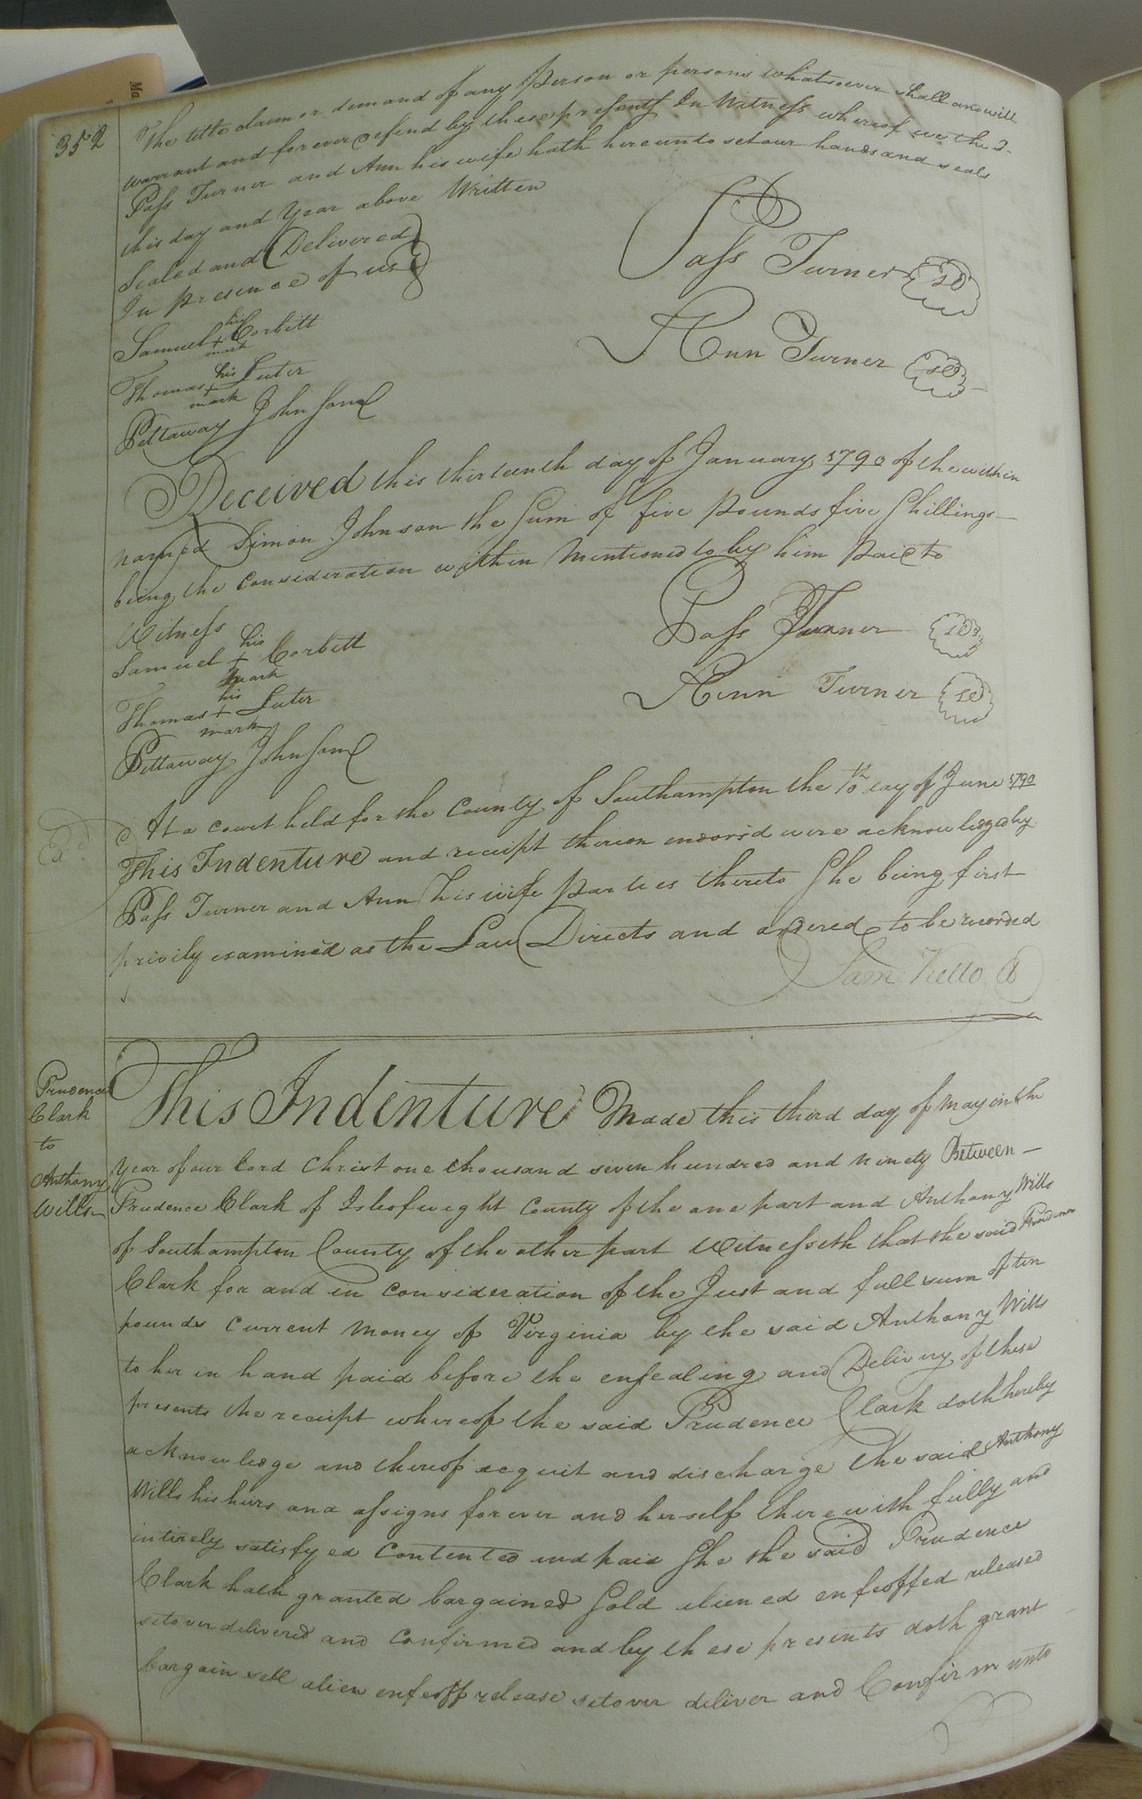 Ma
352
The title claim or demand of any Person or persons whatsoever shall and will
warrant and forever defend by these presents In Witness whereof we the sd.
Pass Turner and Ann his wife hath hereunto set our hands and seals
this day and Year above Written
Sealed and Delivered
In presence of us
Samuel his + mark Corbitt
Thomas his + mark Luter
Pettaway Johnson
Pass Turner LS
Ann Turner LS
Received this thirteenth day of January 1790 of the within
named Simon Johnson the Sum of five Pounds five Shillings
being the consideration within Mentioned to by him Paid to
Witness
Samuel his + mark Corbitt
Thomas his + mark Luter
Pettaway Johnson
Pass Turner LS
Ann Turner LS
At a court held for the County of Southampton the 10th day of June 1790
This Indenture and receipt thereon endors'd were acknowledged by
Pass Turner and Ann his wife Parties thereto She being first
privily examined as the Law Directs and ordered to be recorded
Sam Kello
Prudence
Clark
to
Anthony
Wills
This Indenture Made this third day of May in the
Year of our Lord Christ one thousand seven hundred and ninety Between
Prudence Clark of Isleofweight County of the one part and Anthony Wills
of Southampton County of the other part Witnesseth that the said Prudence
Clark for and in consideration of the Just and full sum of ten
pounds Current Money of Virginia by the said Anthony Wills
to her in hand paid before the ensealing and Delivery of these
presents the receipt whereof the said Prudence Clark doth hereby
acknowledge and thereof acquit and discharge the said Anthony
Wills his heirs and assigns forever and herself therewith fully and
intirely satisfyed Contented and paid She the said Prudence
Clark hath granted bargained Sold aliened enfeoffed released
setover delivered and Confirmed and by these presents doth grant
bargain sell alien enfeoff release setover deliver and Confirm unto